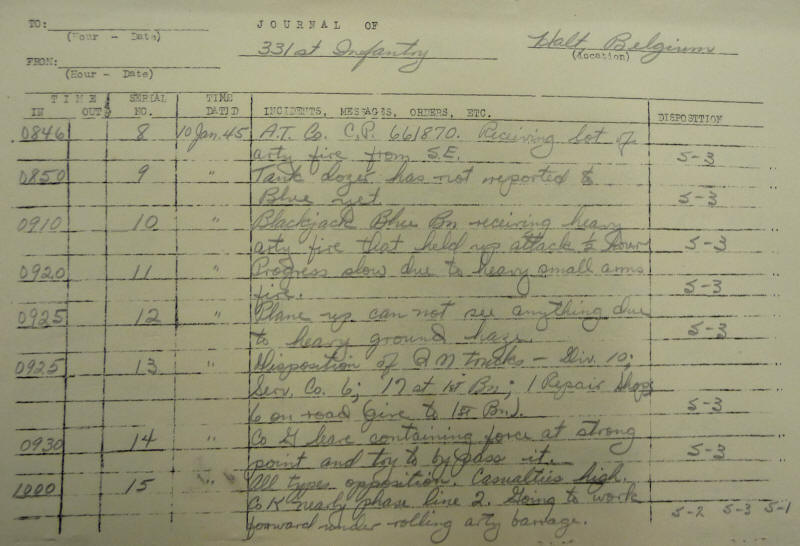 TO: JOURNAL OF
(Hour - Date) 331st Infantry Halt, Belgium
FROM: (Location)
(Hour - Date)
TIME SERIAL TIME
IN OUT NO. DATED INCIDENTS, MESSAGES, ORDERS, ETC. DISPOSITION
0846 8 10 Jan. 45 A.T. Co. C.P. 661870. Receiving lot of
arty fire from S.E. S-3
0850 9 " Tank dozer has not reported to
Blue yet. S-3
0910 10 " Blackjack Blue Bn receiving heavy
arty fire that held up attack ½ hour S-3
0920 11 " Progress slow due to heavy small arms
fire. S-3
0925 12 " Plane up can not see anything due
to heavy ground haze. S-3
0925 13 " Disposition of QM trucks - Div. 10;
Serv. Co. 6; 17 at 1st Bn; 1 Repair Shop;
6 on road (give to 1st Bn). S-3
0930 14 " Co G leave containing force at strong
point and try to by pass it. S-3
1000 15 " All types opposition. Casualties high.
Co K nearly phase line 2. Going to work
forward under rolling arty barrage. S-2 S-3 S-1